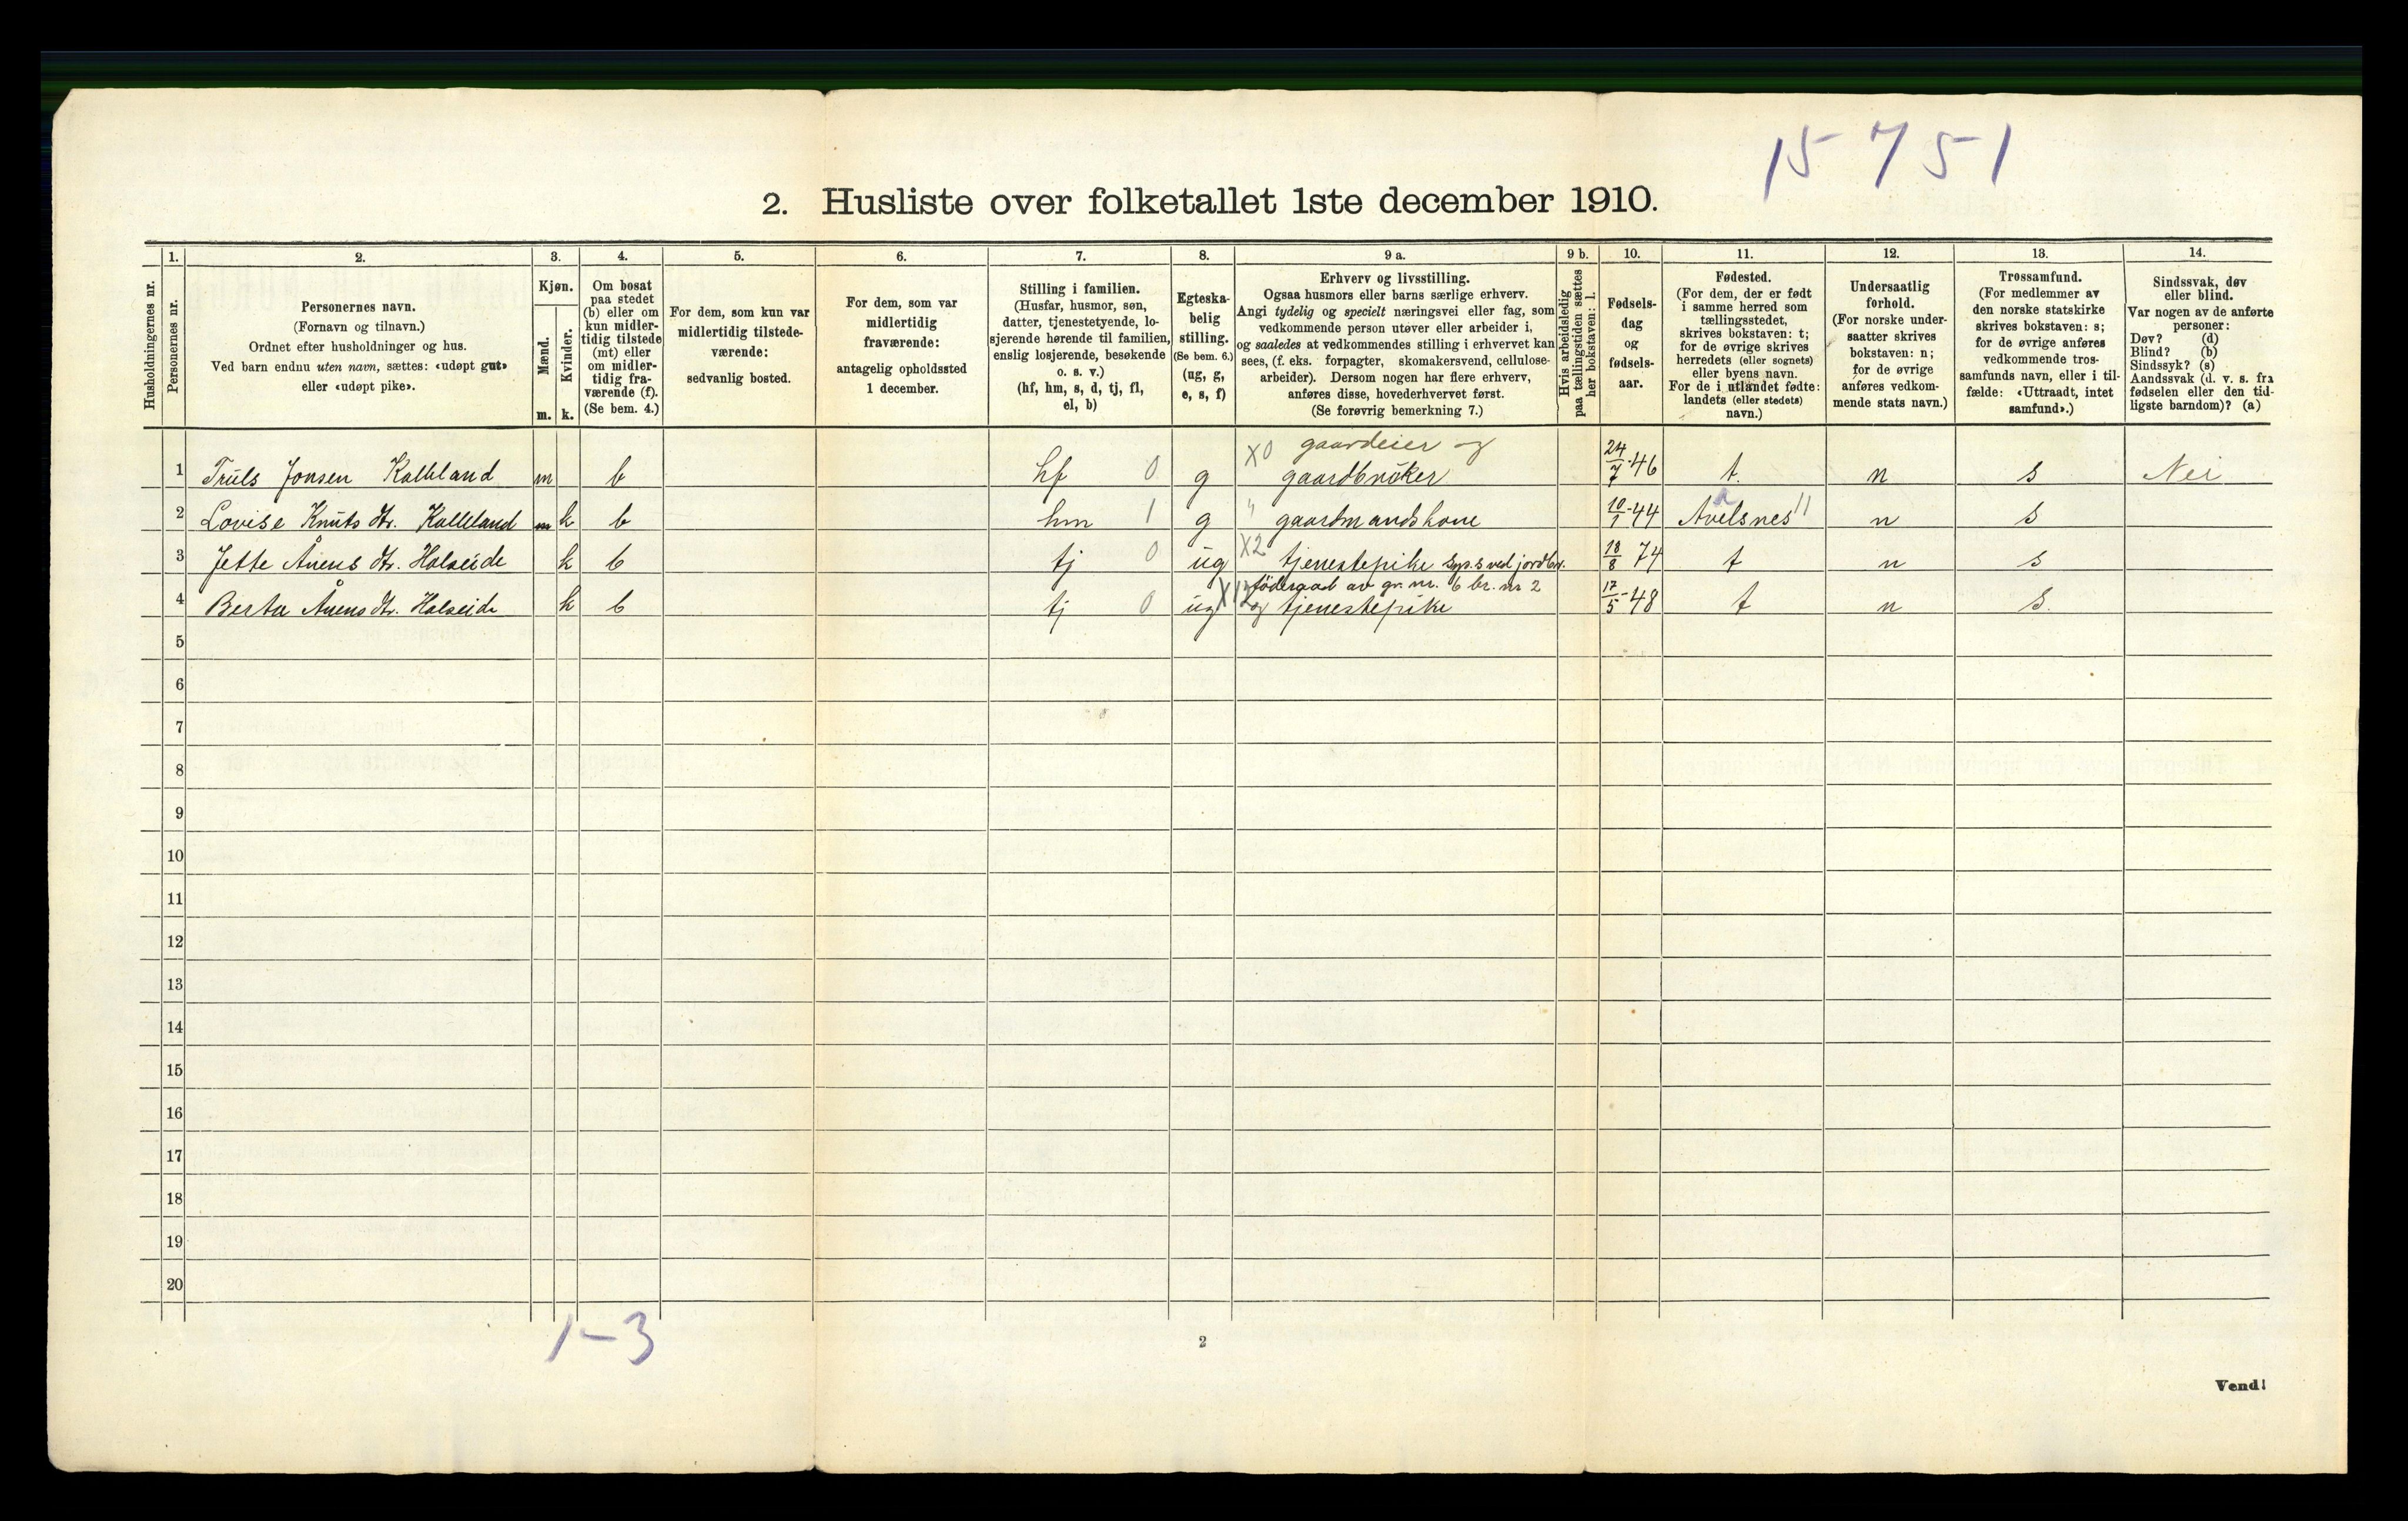 15 7 51
2. Husliste over folketallet 1ste december 1910.
Husholdningernes nr.
1.
Personernes nr.
2.
Personernes navn.
(Fornavn og tilnavn.)
Ordnet efter husholdninger og hus.
Ved barn endnu uten navn, sættes: «udøpt gut»
eller «udøpt pike».
3.
Kjøn.
Mænd.
Kvinder.
m. k.
4.
Om bosat
paa stedet
(b) eller om
kun midler-
tidig tilstede
(mt) eller
om midler-
tidig fra-
værende (f).
(Se bem. 4.)
5.
For dem, som kun var
midlertidig tilstede-
værende:
sedvanlig bosted.
6.
For dem, som var
midlertidig
fraværende:
antagelig opholdssted
1 december.
7.
Stilling i familien.
(Husfar, husmor, søn,
datter, tjenestetyende, lo-
sjerende hørende til familien,
enslig losjerende, besøkende
o. s. v.)
(hf, hm, s, d, tj, fl,
el, b)
8.
Egteska-
belig
stilling.
(Se bem. 6.)
(ug, g,
e, s, f)
9 a.
Erhverv og livsstilling.
Ogsaa husmors eller barns særlige erhverv.
Angi tydelig og specielt næringsvei eller fag, som
vedkommende person utøver eller arbeider i,
og saaledes at vedkommendes stilling i erhvervet kan
sees, (f. eks. forpagter, skomakersvend, cellulose-
arbeider). Dersom nogen har flere erhverv,
anføres disse, hovederhvervet først.
(Se forøvrig bemerkning 7.)
9 b.
Hvis arbeidsledig
paa tællingstiden sættes
her bokstaven: l.
10.
Fødsels-
dag
og
fødsels-
aar.
11.
Fødested.
(For dem, der er født
i samme herred som
tællingsstedet,
skrives bokstaven: t;
for de øvrige skrives
herredets (eller sognets)
eller byens navn.
For de i utlandet fødte:
landets (eller stedets)
navn.)
12.
Undersaatlig
forhold.
(For norske under-
saatter skrives
bokstaven: n;
for de øvrige
anføres vedkom-
mende stats navn.)
13.
Trossamfund.
(For medlemmer av
den norske statskirke
skrives bokstaven: s;
for de øvrige anføres
vedkommende tros-
samfunds navn, eller i til-
fælde: «Uttraadt, intet
samfund».)
14.
Sindssvak, døv
eller blind.
Var nogen av de anførte
personer:
Døv? (d)
Blind? (b)
Sindssyk? (s)
Aandssvak (d. v. s. fra
fødselen eller den tid-
ligste barndom)? (a)
X0 gaardeier og
1 Truls Jonsen Kalleland m b hf 0 g gaardbruker 24/7-46 t. n s Nei
2 Lovise Knuts dtr. Kalleland m k b hm 1 g " gaardmandskone 10/1-44 Avelsnes 11 n s
3 Jette Ånens dtr. Halseide k b tj 0 ug X2 tjenestepike sys. s ved jordbr. 18/8 74 t n s
födsraad av gr. nr. 6 br. nr 2
4 Berta Ånens dtr. Halseide k b tj 0 ug X12 og tjenestepike 17/5-48 t n s.
5
6
7
8
9
10
11
12
13
14
15
16
17
18
19
20
1-3
2
Vend!